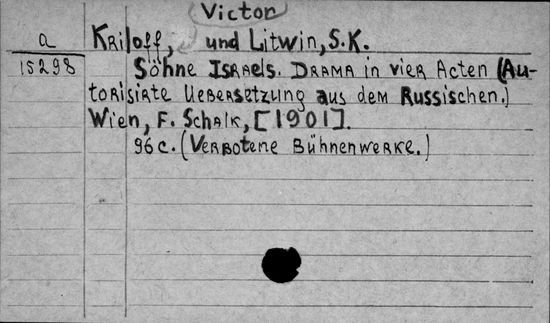 Victor
a Kriloff, und Litwin, S.K.
15298 Söhne Israels. Drama in vier Acten (Au-
torisirte Uebersetzung aus dem Russischen.)
Wien, F. Schalk, [1901].
96c. (Verbotene Bühnenwerke.)